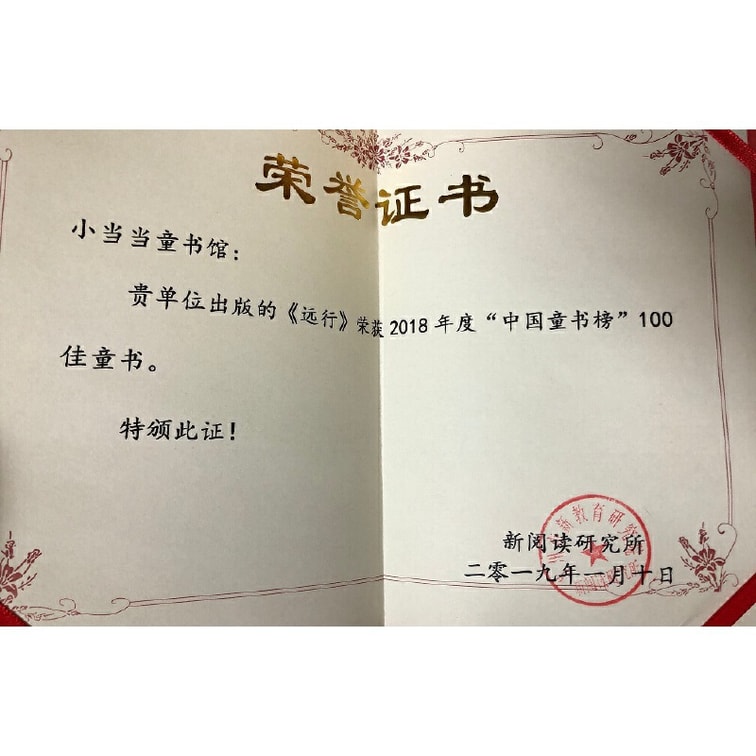 荣誉证书
小当当童书馆：
贵单位出版的《远行》荣获2018年度“中国童书榜”100
佳童书。
特颁此证！
新教育研究
新阅读研究所
二零一九年一月十日